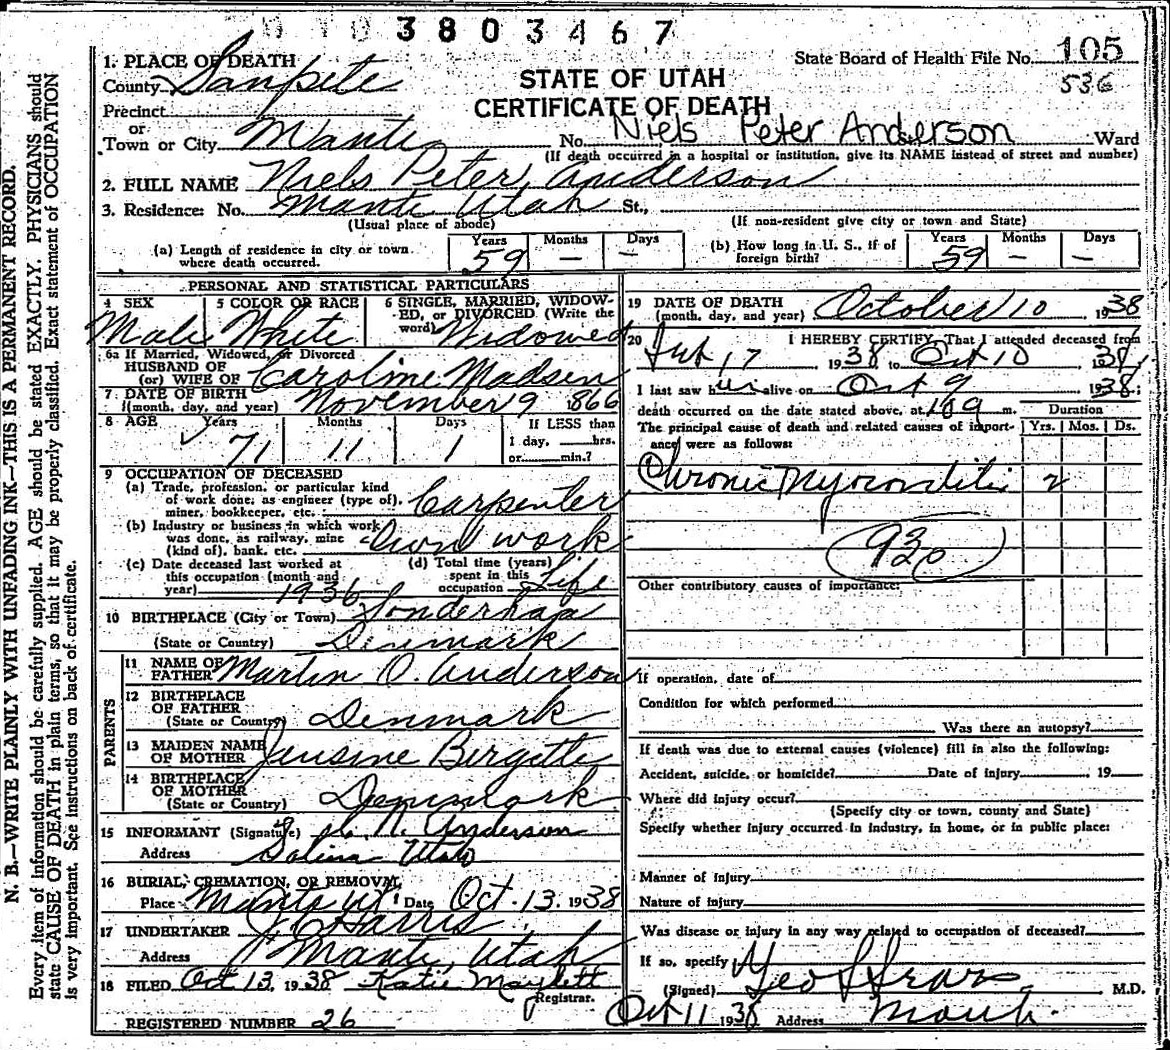 3803467
State Board of Health File No. 105
536
STATE OF UTAH
CERTIFICATE OF DEATH
1. PLACE OF DEATH
County Sanpete
Precinct
or
Town or City Manti No. Niels Peter Anderson Ward
(If death occurred in a hospital or institution, give its NAME instead of street and number)
2. FULL NAME Niels Peter Anderson
3. Residence: No. Manti Utah St.,
(Usual place of abode) (If non-resident give city or town and State)
(a) Length of residence in city or town where death occurred. Years 59 Months — Days —
(b) How long in U. S., if of foreign birth? Years 59 Months — Days —
PERSONAL AND STATISTICAL PARTICULARS
4 SEX Male
5 COLOR OR RACE White
6 SINGLE, MARRIED, WIDOWED, or DIVORCED (Write the word) Widowed
6a If Married, Widowed, or Divorced
HUSBAND OF
(or) WIFE OF Caroline Madsen
7 DATE OF BIRTH
(month, day, and year) November 9 1866
8 AGE Years 71 Months 11 Days 1 If LESS than 1 day, hrs. or min.?
9 OCCUPATION OF DECEASED
(a) Trade, profession, or particular kind
of work done, as engineer (type of),
miner, bookkeeper, etc. Carpenter
(b) Industry or business in which work
was done, as railway, mine
(kind of), bank, etc. Own work
(c) Date deceased last worked at
this occupation (month and
year) 1936
(d) Total time (years)
spent in this
occupation Life
10 BIRTHPLACE (City or Town)
(State or Country) Denmark
PARENTS
11 NAME OF
FATHER Martin O. Anderson
12 BIRTHPLACE
OF FATHER
(State or Country) Denmark
13 MAIDEN NAME
OF MOTHER Jensine Birgette
14 BIRTHPLACE
OF MOTHER
(State or Country) Denmark
15 INFORMANT (Signature) N. Anderson
Address Salina Utah
16 BURIAL, CREMATION, OR REMOVAL
Place Manti Ut. Date Oct. 13. 1938
17 UNDERTAKER Harris
Address Manti, Utah
18 FILED Oct 13, 1938 Katie Maylett
Registrar.
REGISTERED NUMBER 26
19 DATE OF DEATH
(month, day, and year) October 10 1938
20 I HEREBY CERTIFY, That I attended deceased from
17 1938 to Oct 10 1938
I last saw him alive on Oct 9 1938;
death occurred on the date stated above, at 109 m.
The principal cause of death and related causes of importance were as follows:
Duration
Yrs. Mos. Ds.
Chronic Myocarditis 2
930
Other contributory causes of importance:
If operation, date of
Condition for which performed
Was there an autopsy?
If death was due to external causes (violence) fill in also the following:
Accident, suicide, or homicide? Date of injury 19
Where did injury occur?
(Specify city or town, county and State)
Specify whether injury occurred in industry, in home, or in public place:
Manner of injury
Nature of injury
Was disease or injury in any way related to occupation of deceased?
If so, specify
(Signed) Geo M.D.
Oct 11 1938 Address Manti.
N. B.—WRITE PLAINLY WITH UNFADING INK—THIS IS A PERMANENT RECORD.
Every item of information should be carefully supplied. AGE should be stated EXACTLY. PHYSICIANS should
state CAUSE OF DEATH in plain terms, so that it may be properly classified. Exact statement of OCCUPATION
is very important. See instructions on back of certificate.